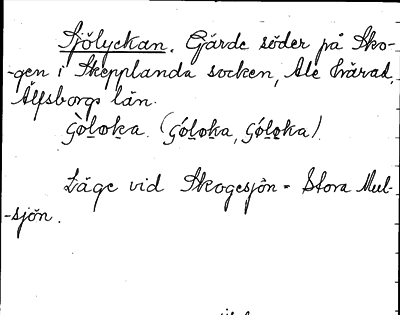 Sjölyckan. Gärde söder på Sko-
-gen i Skepplanda socken, Ale härad,
Älfsborgs län.
Gòloka. (Góloka, Góloka).
Läge vid Skogesjön = Stora Mul-
-sjön.